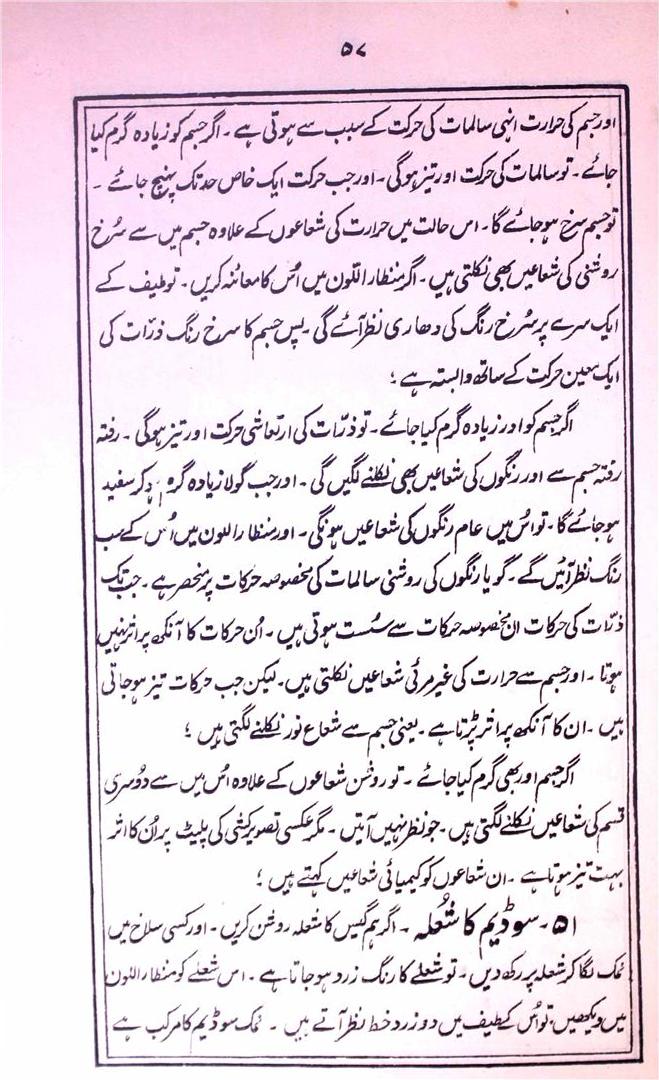 ۵۷
اور جسم کی حرارت انہی سالمات کی حرکت کے سبب سے ہوتی ہے۔ اگر جسم کو زیادہ گرم کیا
جائے۔ تو سالمات کی حرکت اور تیز ہوگی۔ اور جب حرکت ایک خاص حد تک پہنچ جائے۔
تو جسم سرخ ہو جائے گا۔ اس حالت میں حرارت کی شعاعوں کے علاوہ جسم میں سے سُرخ
روشنی کی شعاعیں بھی نکلتی ہیں۔ اگر منظار اللون میں اُس کا معائنہ کریں۔ تو طیف کے
ایک سرے پر سُرخ رنگ کی دھاری نظر آئے گی۔ پس جسم کا سرخ رنگ ذرّات کی
ایک معین حرکت کے ساتھ وابستہ ہے ؛
اگر جسم کو اور زیادہ گرم کیا جائے۔ تو ذرّات کی ارتعاشی حرکت اور تیز ہوگی۔ رفتہ
رفتہ جسم سے اور رنگوں کی شعاعیں بھی نکلنے لگیں گی۔ اور جب گولا زیادہ گرم ہو کر سفید
ہو جائے گا۔ تو اُس میں عام رنگوں کی شعاعیں ہونگی۔ اور منظار اللون میں اُس کے سب
رنگ نظر آئیں گے۔ گویا رنگوں کی روشنی سالمات کی مخصوصہ حرکات پر منحصر ہے۔ جب تک
ذرّات کی حرکات ان مخصوصہ حرکات سے سُست ہوتی ہیں۔ اُن حرکات کا آنکھ پر اثر نہیں
ہوتا۔ اور جسم سے حرارت کی غیر مرئی شعاعیں نکلتی ہیں۔ لیکن جب حرکات تیز ہو جاتی
ہیں۔ ان کا آنکھ پر اثر پڑتا ہے۔ یعنی جسم سے شعاع نور نکلنے لگتی ہیں ؛
اگر جسم اور بھی گرم کیا جائے۔ تو روشن شعاعوں کے علاوہ اُس میں سے دُوسری
قسم کی شعاعیں نکلنے لگتی ہیں۔ جو نظر نہیں آتیں۔ مگر عکسی تصویر کشی کی پلیٹ پر اُن کا اثر
بہت تیز ہوتا ہے۔ ان شعاعوں کو کیمیائی شعاعیں کہتے ہیں ؛
۵۱۔ سوڈیم کا شُعلہ۔ اگر ہم گیس کا شعلہ روشن کریں۔ اور کسی سلاخ میں
نمک لگا کر شعلہ پر رکھ دیں۔ تو شعلے کا رنگ زرد ہو جاتا ہے۔ اس شعلے کو منظار اللون
میں دیکھیں، تو اُس کے طیف میں دو زرد خط نظر آتے ہیں۔ نمک سوڈیم کا مرکب ہے